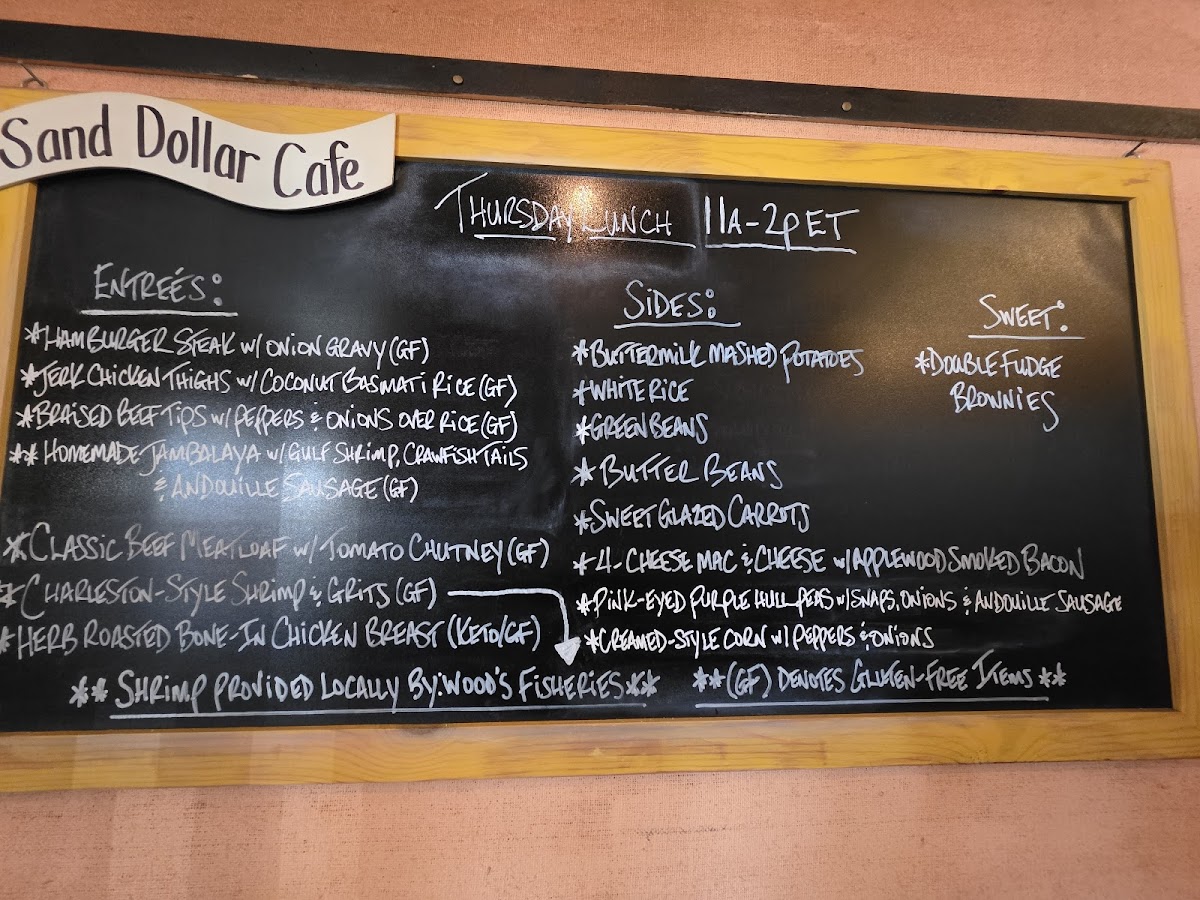 Sand Dollar Cafe
THURSDAY LUNCH 11A-2PET
ENTREÉS:
*HAMBURGER STEAK W/ ONION GRAVY (GF)
*JERK CHICKEN THIGHS W/ COCONUT BASMATI RICE (GF)
*BRAISED BEEF TIPS W/ PEPPERS & ONIONS OVER RICE (GF)
** HOMEMADE JAMBALAYA W/ GULF SHRIMP, CRAWFISH TAILS
& ANDOUILLE SAUSAGE (GF)
*CLASSIC BEEF MEATLOAF W/ TOMATO CHUTNEY (GF)
*CHARLESTON-STYLE SHRIMP & GRITS (GF)
*HERB ROASTED BONE-IN CHICKEN BREAST (KETO/GF)
** SHRIMP PROVIDED LOCALLY BY: WOOD'S FISHERIES**
SIDES:
*BUTTERMILK MASHED POTATOES
*WHITE RICE
*GREEN BEANS
*BUTTER BEANS
*SWEET GLAZED CARROTS
*4-CHEESE MAC & CHEESE W/ APPLEWOOD SMOKED BACON
*PINK-EYED PURPLE HULL PEAS W/ SNAPS, ONIONS & ANDOUILLE SAUSAGE
*CREAMED-STYLE CORN W/ PEPPERS & ONIONS
**(GF) DENOTES GLUTEN-FREE ITEMS **
SWEET:
*DOUBLE FUDGE
BROWNIES